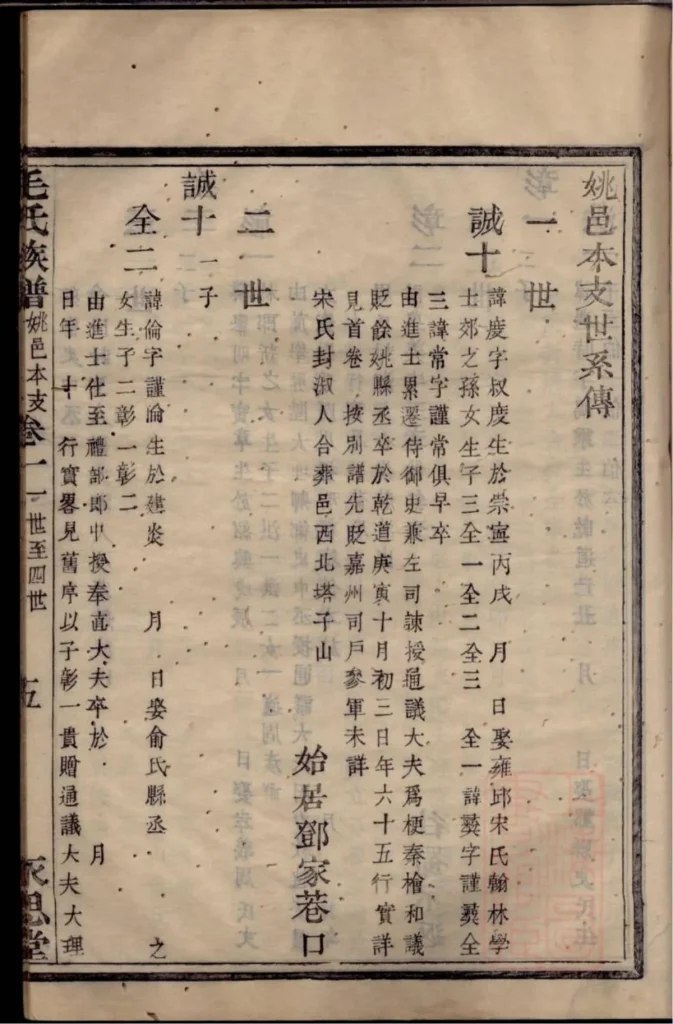 姚邑本支世系傳
一世
誠十
諱慶字叔慶生於崇寧丙戌　月　日娶雍邱宋氏翰林學
士郊之孫女生子三全一全二全三　全一諱彛字謹彛全
三諱常字謹常俱早卒
由進士累遷侍御史兼左司諫授通議大夫爲梗秦檜和議
貶餘姚縣丞卒於乾道庚寅十月初三日年六十五行實詳
見首卷　按別譜先貶嘉州司戶參軍未詳
宋氏封淑人合葬邑西北塔子山
始居鄧家巷口
二世
誠十一子
全二
諱倫字謹倫生於建炎　月　日娶俞氏縣丞　之
女生子二彰一彰二
由進士仕至禮部郎中授奉直大夫卒於　月
日年　十　行實畧見舊序以子彰一貴贈通議大夫大理
毛氏族譜　姚邑本支　卷一　一世至四世　五　永思堂